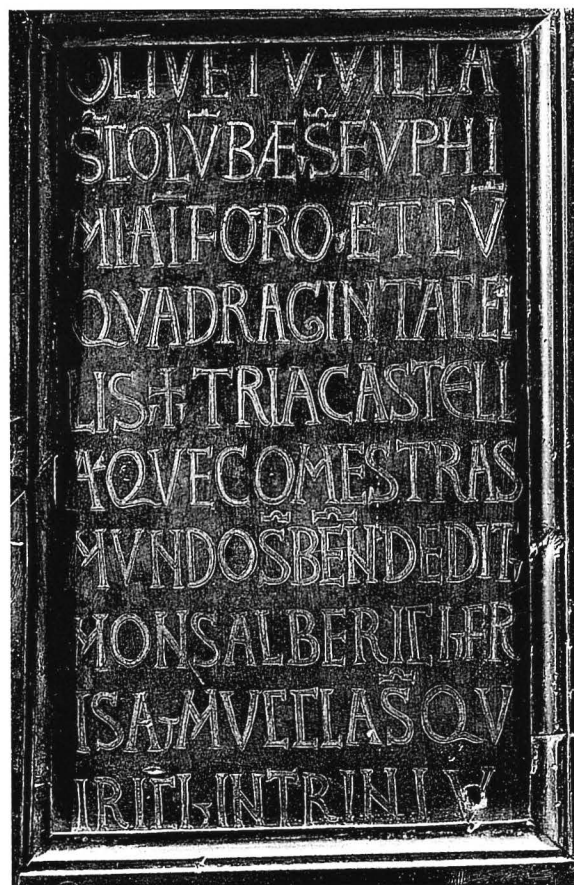 OLIVETV, VILLA
S̃COLV̄BÆ, S̃ EVPHI
MIA Ī FORO, ET CV̄
QVADRAGINTA CEL
LIS, ✝, TRIA CASTELL
A, QVE COMES TRAS
MVNDO S̃ BEÑ DEDIT,
MONS ALBERICI, FR
ISA, MVCCLA, S̃ QV
IRICI, IN TRINIV